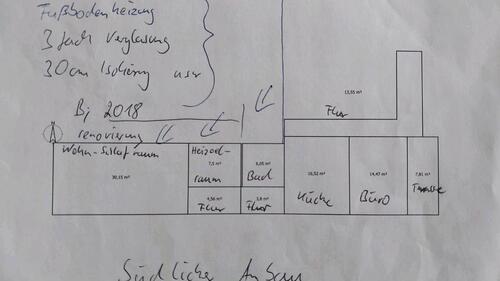 Fußbodenheizung
3 fach Verglasung
30cm Isolierung usw
Bj 2018
renovierung
13,55 m²
Flur
Wohn-Schlafraum
30,15 m²
Heizod-
raum
7,5 m²
6,05 m²
Bad
4,56 m²
Flur
3,8 m²
Flur
16,52 m²
Küche
14,47 m²
Büro
7,81 m²
Terrasse
Südlicher Anbau